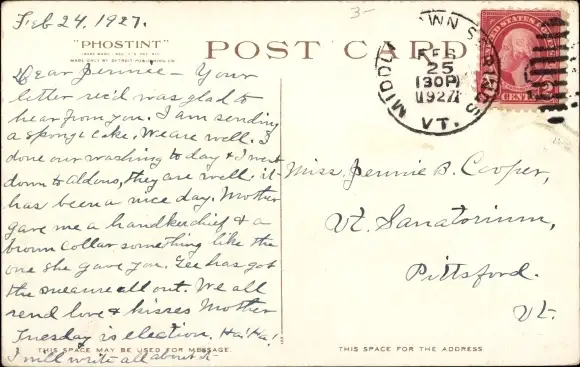 Feb 24, 1927.
3-
"PHOSTINT"
MADE ONLY BY DETROIT PUBLISHING CO.
POST CARD
MIDDLETOWN SPRINGS
FEB
25
130P
1927
VT.
UNITED STATES POSTAGE
2 CENTS 2
Dear Jennie - Your
letter rec'd was glad to
hear from you. I am sending
a sponge cake. We are well. I
done our washing to day & I went
down to Aldens, they are well. it
has been a nice day. Mother
gave me a handkerchief & a
brown collar something like the
one she gave you. Lee has got
the manure all out. We all
send love & kisses Mother
Tuesday is election. Ha! Ha!
I will write all about it
Miss. Jennie B. Cooper,
Vt. Sanatorium,
Pittsford.
Vt.
THIS SPACE MAY BE USED FOR MESSAGE.
THIS SPACE FOR THE ADDRESS